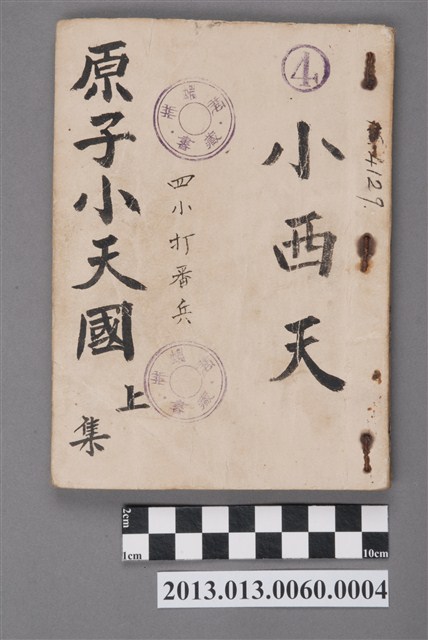 ④
4129.
小西天
四小打番兵
原子小天國
上集
2cm
1cm
10cm
2013.013.0060.0004